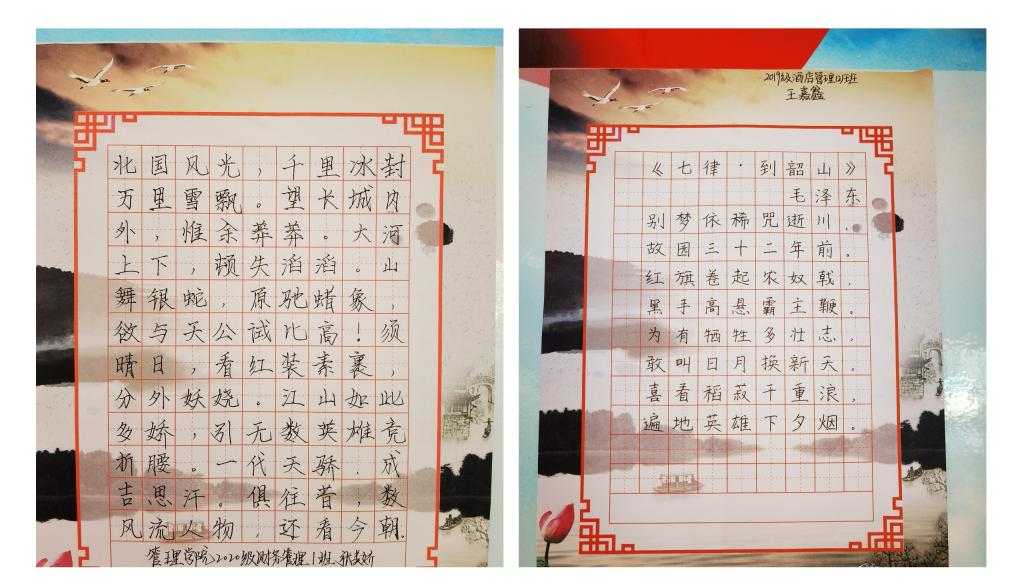 北国风光，千里冰封
万里雪飘。望长城内
外，惟余莽莽。大河
上下，顿失滔滔。山
舞银蛇，原驰蜡象，
欲与天公试比高！须
晴日，看红装素裹，
分外妖娆。江山如此
多娇，引无数英雄竞
折腰。一代天骄，成
吉思汗。俱往昔，数
风流人物，还看今朝.
管理学院2020级财务管理1班
2019级酒店管理(2)班
王嘉鑫
《七律·到韶山》
毛泽东
别梦依稀咒逝川，
故园三十二年前。
红旗卷起农奴戟，
黑手高悬霸主鞭。
为有牺牲多壮志，
敢叫日月换新天。
喜看稻菽千重浪，
遍地英雄下夕烟。